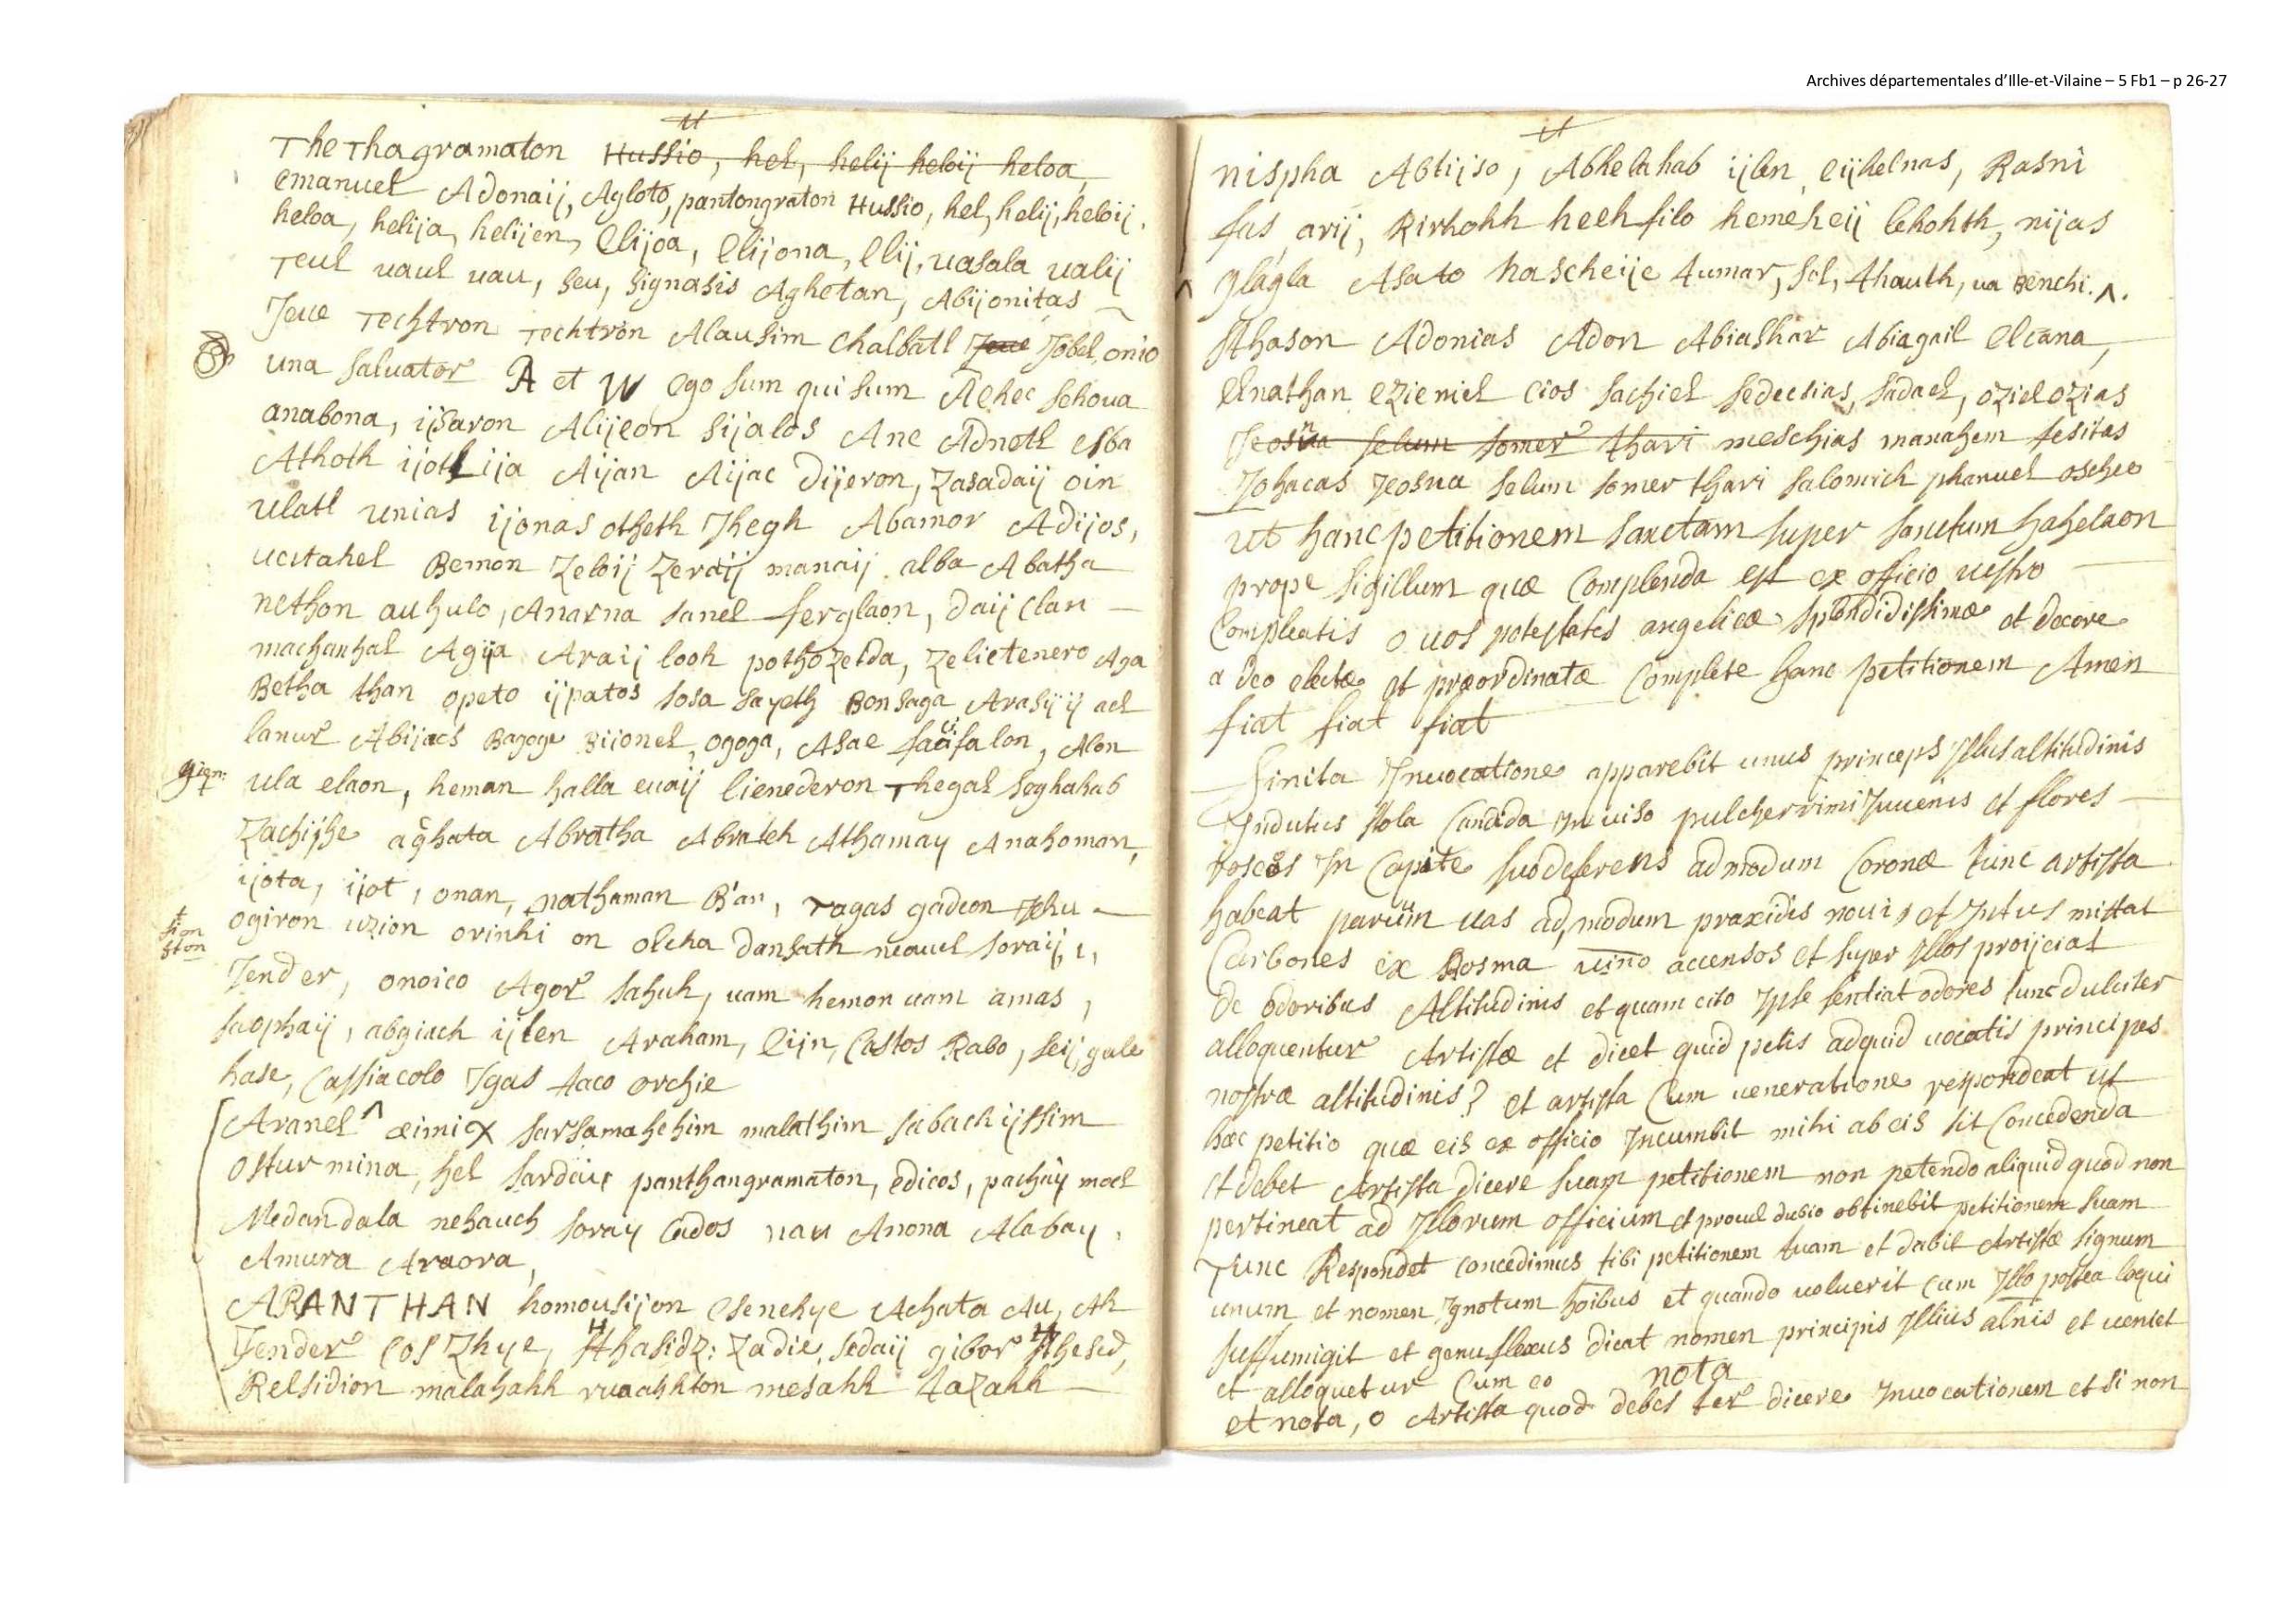 Archives départementales d'Ille-et-Vilaine – 5 Fb1 – p 26-27
Thethagramaton Hussio, hel, helij heloij heloa,
Emanuel Adonaij, Agloto, pantongraton Hussio, hel, helij, heloij,
heloa, helija, helijen, Elijoa, Elijona, Elij, uasala ualij
Teul uaul uau, seu, signasis Aghetan, Abijonitas
Jeue Techtron Techtron Alausim Chalbatl Jeue Jobel, onio
una saluator A et W Ego sum qui sum Aehec sehoua
anabona, ijsaron Alijeon sijalos Ane Adnotl Esba
Athoth ijotl ija Aijan Aijac Dijeron, Zasadaij oin
ulatl unias ijonas otheth Jhegh Abamor Adijos,
ucitahel Bemon Zeloij Zeraij manaij alba Abatha
nethon auhulo, Anarna sanel ferglaon, daij clan
machanhal Agija Araij looh pothozelda, Zelietenero Aga
Betha than opeto ijpatos sosa sayeth Bonsaga Arasijij ael
lanur Abijacs Bagoge Biionel, ogoga, Asae falon, Alon
gien:
ula elaon, heman halla euaij lienederon Thegal seghahab
Zachijhe aghata Abratha Abrateh Athamay Anahoman,
ijota, ijot, onan, nathaman Ban, ragas gadeon Jehu
sion
ston
ogiron uzion orinhi on olcha dansath neauel soraij,
Jender, onoico Agor sahuh, uam hemon uam amas,
saophaij, abgiach ijlen Araham, Eijn, Castos Rabo, seij, gale
hase, Cassiacolo Igas taco orchie
Aranel ^ æimix sarsamahehim malathim sabachijssim
osturmina, hel sardaij panthangramaton, edicos, pachaij mael
Medandala nehauch soray Cados nau Anona Alabay,
Amura Araora,
ARANTHAN homousijon Esenehye Achata Au, Ah
Jender Cos Zhye, Hhasidz: Zadie, sedaij gibor Hhesed,
Relsidion malahahh ruaahhton mesahh tazahh
nispha Ablijso, Abhelahab ijlen, Eijhelnas, Rasni
fas arij, Rirhohh heehfilo hemeheij lehohth, nijas
glagla Asato hascheije tumar, sol, thauth, ua Benchi. ^.
Sthason Adonias Adon Abiashar Abiagail Elcana,
Elnathan Ezieniel Eios sachiel sedecsias, sadael, oziel ozias
Jeosua selum somer thari meschias manahem fesitas
Johacas Jeosua selum somer thari salomich phanuel oscheo
ut hanc petitionem sanctam super sanctum hahelaon
prope sigillum quæ Complenda est ex officio uestro
Compleatis o uos potestates angelicæ splendidissimæ et decore
a deo electæ et præordinatæ Complete hanc petitionem Amen
fiat fiat fiat
finita Inuocatione apparebit unus princeps Illius altitudinis
Indutus stola Candida in uiso pulcherrimi Juuenis et flores
roseos In Capite suo deferens ad modum Coronæ tunc artista
habeat paruum uas ad, modum praxidis noui, et Intus mittat
Carbones ex Rosma uino accensos et super Illos proijciat
De odoribus Altitudinis et quam cito Ipse sentiat odores tunc dulciter
alloquentur Artistæ et dicet quid petis ad quid uocatis principes
nostræ altitudinis? et artista Cum ueneratione respondeat ut
hæc petitio quæ eis ex officio Incumbit mihi ab eis sit Concedenda
et debet Artista dicere suam petitionem non petendo aliquid quod non
pertineat ad Illorum officium et procul dubio obtinebit petitionem suam
Tunc Respondet concedimus tibi petitionem tuam et dabit Artistæ signum
unum et nomen Ignotum hoibus et quando uoluerit Cum Illo postea loqui
suffumigit et genu flexus dicat nomen principis Illius alnis et ueniet
et alloquetur Cum eo nota
et nota, o Artista quod debes ter dicere Inuocationem et si non